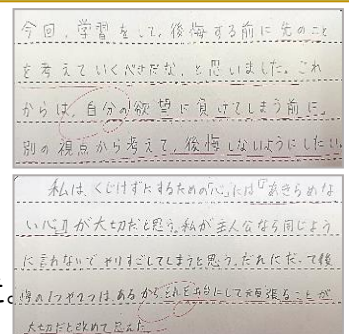 今回、学習をして、後悔する前に先のこと
を考えていくべきだな、と思いました。これ
からは、自分の欲望に負けてしまう前に、
別の視点から考えて、後悔しないようにしたい。
私は、くじけずにするための「心」には「あきらめな
い心」が大切だと思う。私が主人公なら同じよう
に言れないでやりすごしてしまうと思う。だれにだって後
悔の1つや2つは、あるからそれをバネにして頑張ることが
大切だと改めて思えた。
た。